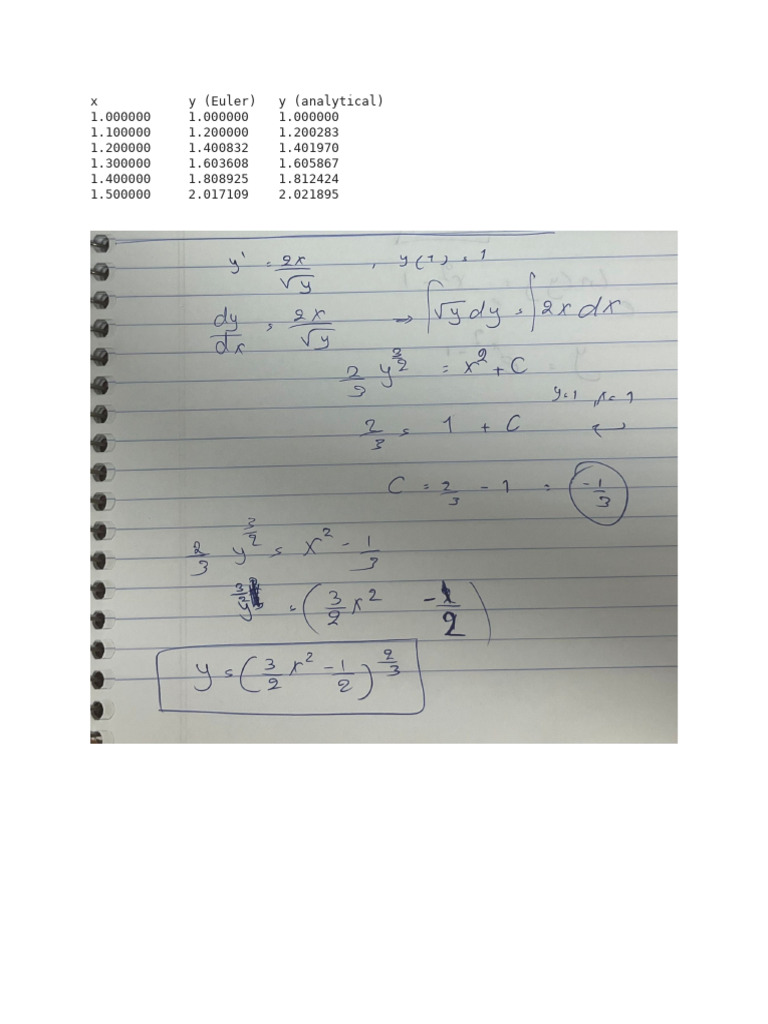 x y (Euler) y (analytical)
1.000000 1.000000 1.000000
1.100000 1.200000 1.200283
1.200000 1.400832 1.401970
1.300000 1.603608 1.605867
1.400000 1.808925 1.812424
1.500000 2.017109 2.021895
y' = 2x/√y , y(1) = 1
dy/dx = 2x/√y → ∫√y dy = ∫2x dx
2/3 y^(3/2) = x² + C
y=1 , x=1
2/3 = 1 + C ↵
C = 2/3 - 1 = -1/3
2/3 y^(3/2) = x² - 1/3
y^(3/2) = (3/2 x² - 1/2)
y = (3/2 x² - 1/2)^(2/3)